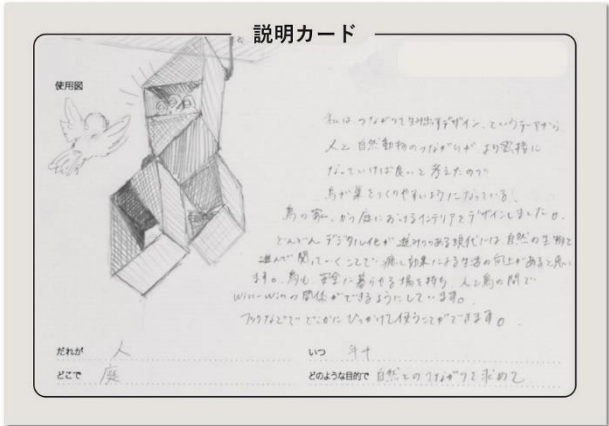 説明カード
使用図
私は つながって生み出すデザイン、というテーマから、
人と自然動物のつながりが より密接に
なっていけば良いと考えたので
鳥が巣をつくりやすいようになっている
鳥の家、かつ庭におけるインテリアをデザインしました。
どんどん デジタル化が進みつつある現代には 自然の生物と
進んで関っていくことで 癒し効果による生活の向上があると思い
ます。鳥も 安全に暮らせる場を持ち、人と鳥の間で
win-winの関係ができるようにしています。
フックなどで どこかに ひっかけて使うことができます。
だれが 人
いつ
どこで 庭
どのような目的で 自然とのつながりを求めて